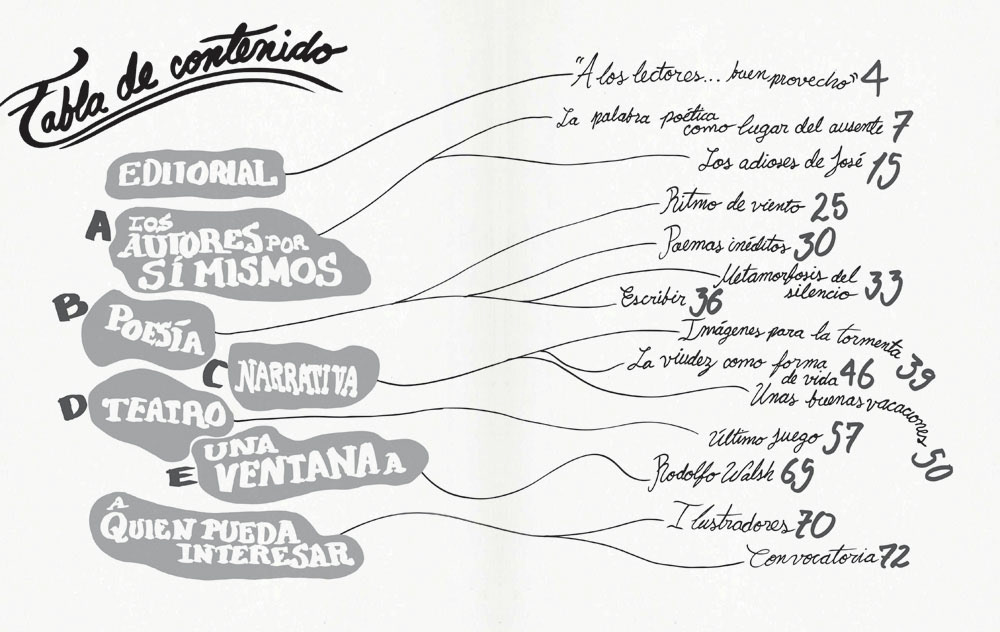 Tabla de contenido
EDITORIAL
"A los lectores... buen provecho" 4
A LOS
AUTORES POR
SÍ MISMOS
La palabra poética
como lugar del ausente 7
Los adioses de José 15
B POESÍA
Ritmo de viento 25
Poemas inéditos 30
Metamorfosis del
silencio 33
Escribir 36
C NARRATIVA
Imágenes para la tormenta 39
La viudez como forma
de vida 46
Unas buenas vacaciones 50
D TEATRO
Último juego 57
E UNA
VENTANA A
Rodolfo Walsh 69
A
QUIEN PUEDA
INTERESAR
Ilustradores 70
Convocatoria 72